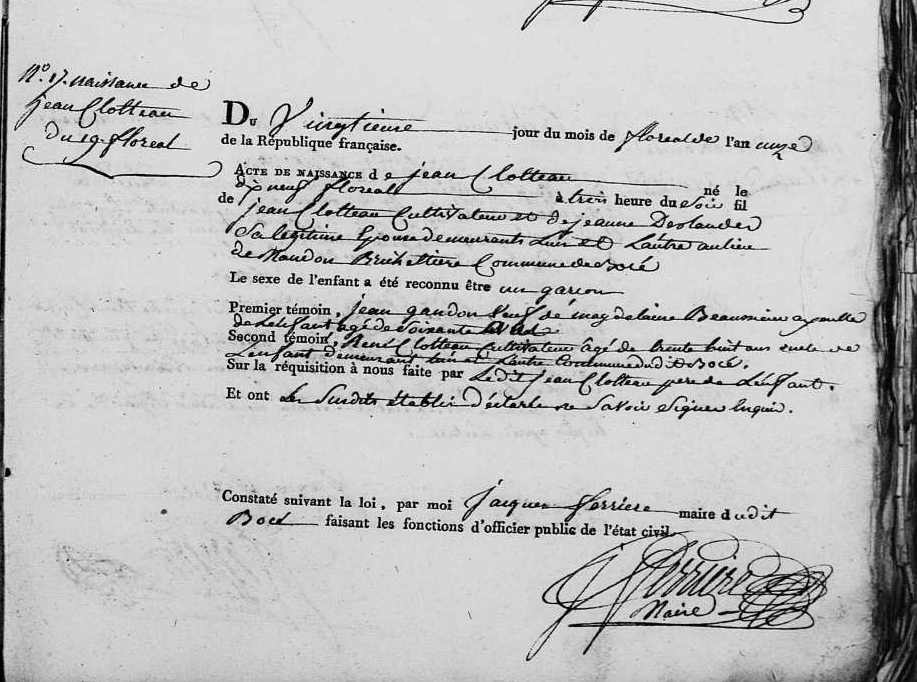 N.° 17. naissance de
jean Clotteau
du 19. floreal
DU Vingtieme jour du mois de floreal de l'an onze
de la République française.
ACTE DE NAISSANCE de jean Clotteau né le
dix neuf floreal à trois heure du soir fil
de jean Clotteau Cultivateur et de jeanne Deslandes
Sa legitime Epouse demeurants Lun et Lautre au lieu
de Commune de Bocé
Le sexe de l'enfant a été reconnu être un garcon
Premier témoin, jean gaudon veuf de magdelaine ayeulle
de Lenfant agé de Soixante
Second témoin, René Clotteau Cultivateur agé de trente huit ans oncle de
Lenfant demeurant lun et Lautre Commune dudit Bocé.
Sur la réquisition à nous faite par Ledit jean Clotteau pere de Lenfant.
Et ont Les Susdits établir déclaré ne Savoir Signer Enquis.
Constaté suivant la loi, par moi jacques ferriere maire dudit
Bocé faisant les fonctions d'officier public de l'état civil.
J ferriere
Maire